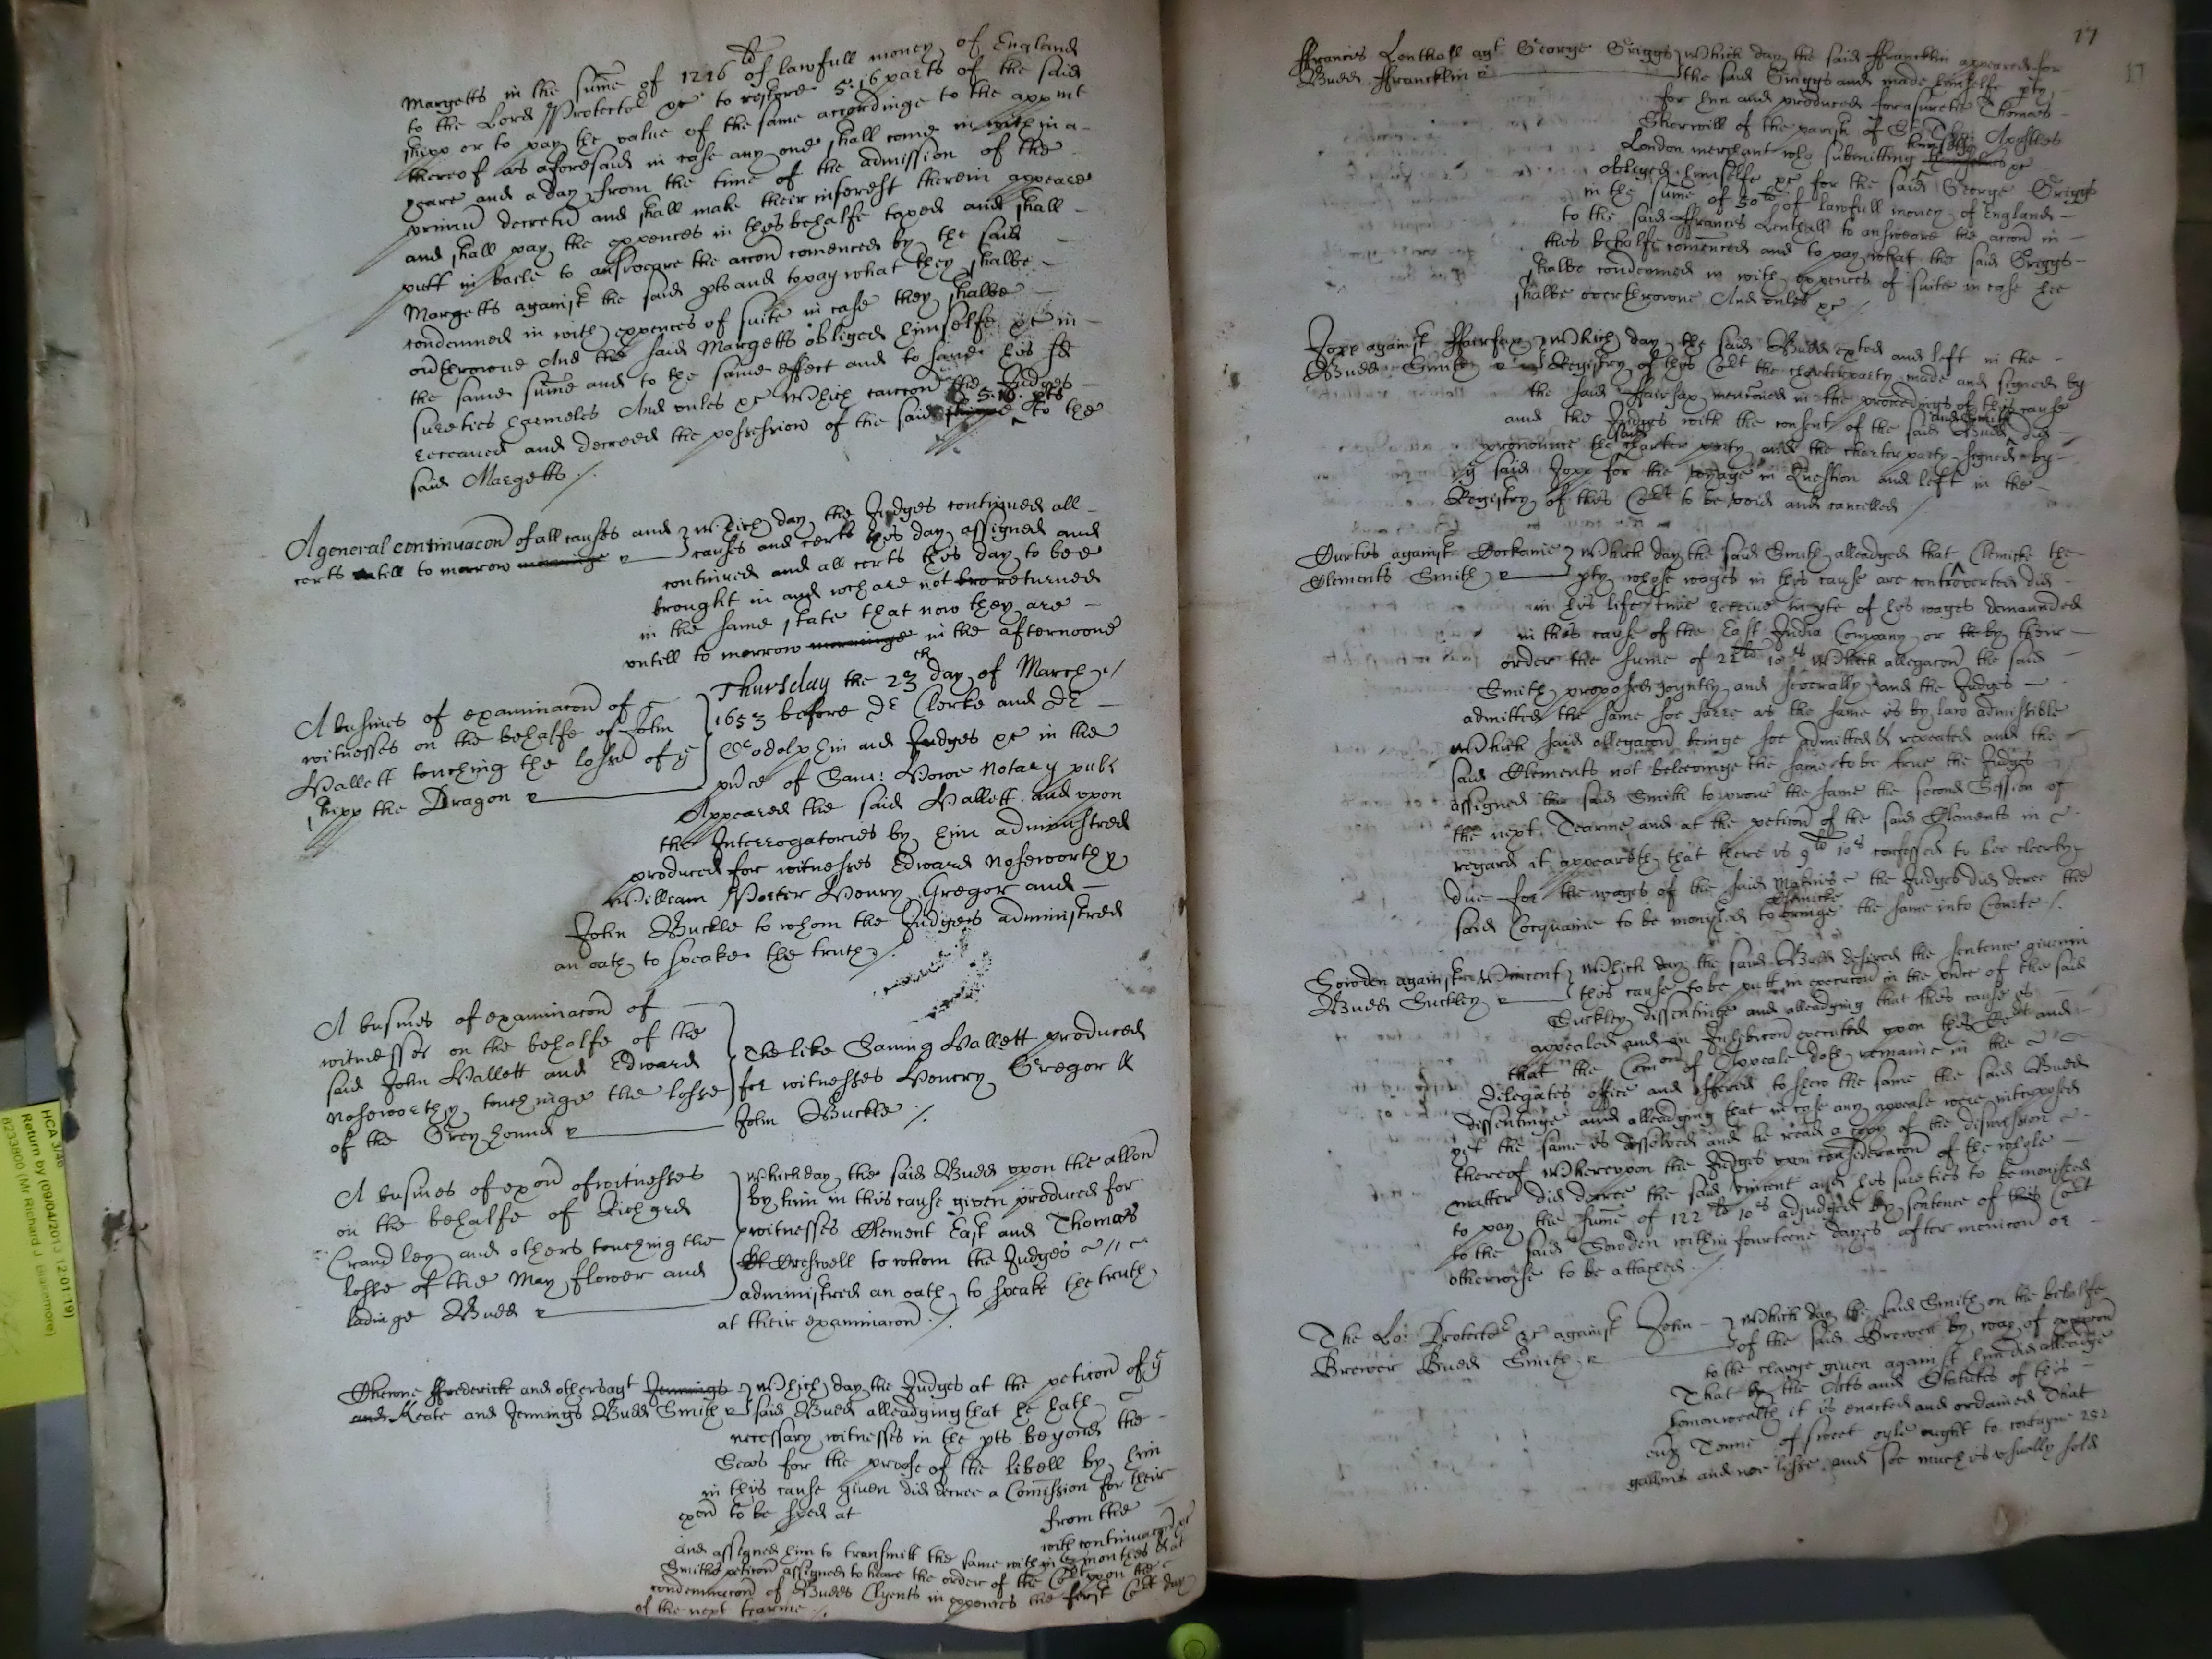 Margetts in the sume of 1216li of lawfull money of England
to the Lord Protector &c to restore 5:16 parts of the said
shipp or to pay the value of the same accordinge to the appmt
thereof as aforesaid in case any one shall come in within a
yeare and a day from the time of the admission of the
primu decretu and shall make their interest therein appeare
and shall pay the expences in this behalfe taxed and shall
putt in baile to answeare the accon comenced by the said
Margetts against the said pts and to pay what they shalbe
condemned in with expences of suite in case they shalbe
overthrowne And the said Margetts obliged himselfe &c in
the same sume and to the same effect and to save his sd
sureties harmeles And unles &c Which caucon the Judges
receaved and decreed the possession of the said shippe 5.16. pts to the
said Margetts /.
A general continuacon of all causes and
certs untill to morrow morninge
Which day the Judges continued all
causes and certs this day assigned and
continued and all certs this day to bee
brought in and wch are not bro returned
in the same state that now they are
untill to morrow morninge in the afternoone
Thursday the 23th day of March
1653 before Dr Clerke and Dr
Godolphin and Judges &c in the
pnce of Sam: Howe Notary publ
A busines of examinacon of
witnesses on the behalfe of John
Hallett touching the losse of ye
shipp the Dragon
Appeared the said Hallett and upon
the Interrogatories by him administred
produced for witnesses Edward Noseworthy
William Porter Henry Gregor and
John Buckle to whom the Judges administred
an oath to speake the truth /.
A busines of examinacon of
witnesses on the behalfe of the
said John Hallett and Edward
Noseworthy touchinge the losse
of the Greyhound
The like Saving Hallett produced
for witnesses Henry Gregor &
John Buckle /.
A busines of exon of witnesses
on the behalfe of Richard
Crandley and others touching the
losse of the May flower and
ladinge Budd
Which day the said Budd upon the allon
by him in this cause given produced for
witnesses Clement East and Thomas
Creswell to whom the Judges
administred an oath to speake the truth
at their examinacon /.
Oherne Frederick and others agt Jennings
and Keate and Jennings Budd Smith
Which day the Judges at the peticon of ye
said Budd alleadging that he hath
necessary witnesses in the pts beyond the
Seas for the proofe of the libell by him
in this cause given did decree a Comission for their
exon to be sped at from the
with continuacon &c
and assigned him to transmitt the same within 3 monthes &c at
Smiths peticon assigned to heare the order of the Cort upon the
condemnacon of Budds Clyents in expences the first Cort day
of the next tearme /.
17
17
Francis Lenthall agt George Griggs
Budd Francklin
Which day the said Francklin appeared for
the said Griggs and made himselfe pty
for him and produced for a suretie Thomas
Sherwill of the parish of St Apostles
London merchant who submitting himselfe &c
obliged himselfe &c for the said George Griggs
in the sume of 50li of lawfull money of England
to the said Francis Lenthall to answeare the accon in
this behalfe comenced and to pay what the said Griggs
shalbe condemned in with expences of suite in case hee
shalbe overthrowne And unles &c /.
Jopp against Fairfax
Budd Smith
Which day the said Budd exted and left in the
Registry of this Cort the charterparty made and signed by
the said Fairfax mencioned in the proceedings of this cause
and the Judges with the consent of the said Budd and Smith did
pronounce the said charter party and the charter party signed by
ye said Jopp for the voyage in Question and left in the
Registry of this Cort to be void and cancelled /.
Curties against Cockaine
Clements Smith
Which day the said Smith alleadged that Clemicke the
pty whose wages in this cause are controverted did
in his life time receive in pte of his wages demaunded
in this cause of the East India Company or the by their
order the sume of 22li 10s Which allegacon the said
Smith proposed joyntly and severally and the Judges
admitted the same soe farre as the same is by law admissible
Which said allegacon beinge soe admitted & repeated and the
said Clements not beleevinge the same to be true the Judges
assigned the said Smith to prove the same the second Session of
the next Tearme and at the peticon of the said Clements in
regard it appeareth that there is 9li 10s confessed to bee cleerly
due for the wages of the said Clemicke the Judges did decree the
said Cocquaine to be monished to bringe the same into Courte /.
Sowden against Vincent
Budd Suckley
Which day the said Budd desired the sentence given in
this cause to be putt in execucon in the pnce of the said
Suckley dissentinge and alleadging that this cause is
appealed and an Inhibicon executed upon this Cort and
that the Comon of Appeale doth remaine in the
Delegates office and offered to shew the same the said Budd
dissentinge and alleadging that in case any appeale were interposed
yet the same is dissolved and he read a copy of the dismission
thereof Whereupon the Judges upon consideracon of the whole
matter did decree the said Vincent and his sureties to be monished
to pay the sume of 122li 10s adjudged by sentence of this Cort
to the said Sowden within fourteene dayes after monicon or
otherwise to be attached /.
The Lo: Protector &c against John
Brewer Budd Smith
Which day the said Smith on the behalfe
of the said Brewer by way of excepcon
to the charge given against him did alleadge
That by the Acts and Statutes of this
Comonwealth it is enacted and ordained That
evry Tonne of sweet oyle ought to contayne 252
gallons and noe lesse and soe much is usually sold
HCA 3/46
Return by (09/04/2013 12:01:19)
6233800 (Mr Richard J Blakemore)